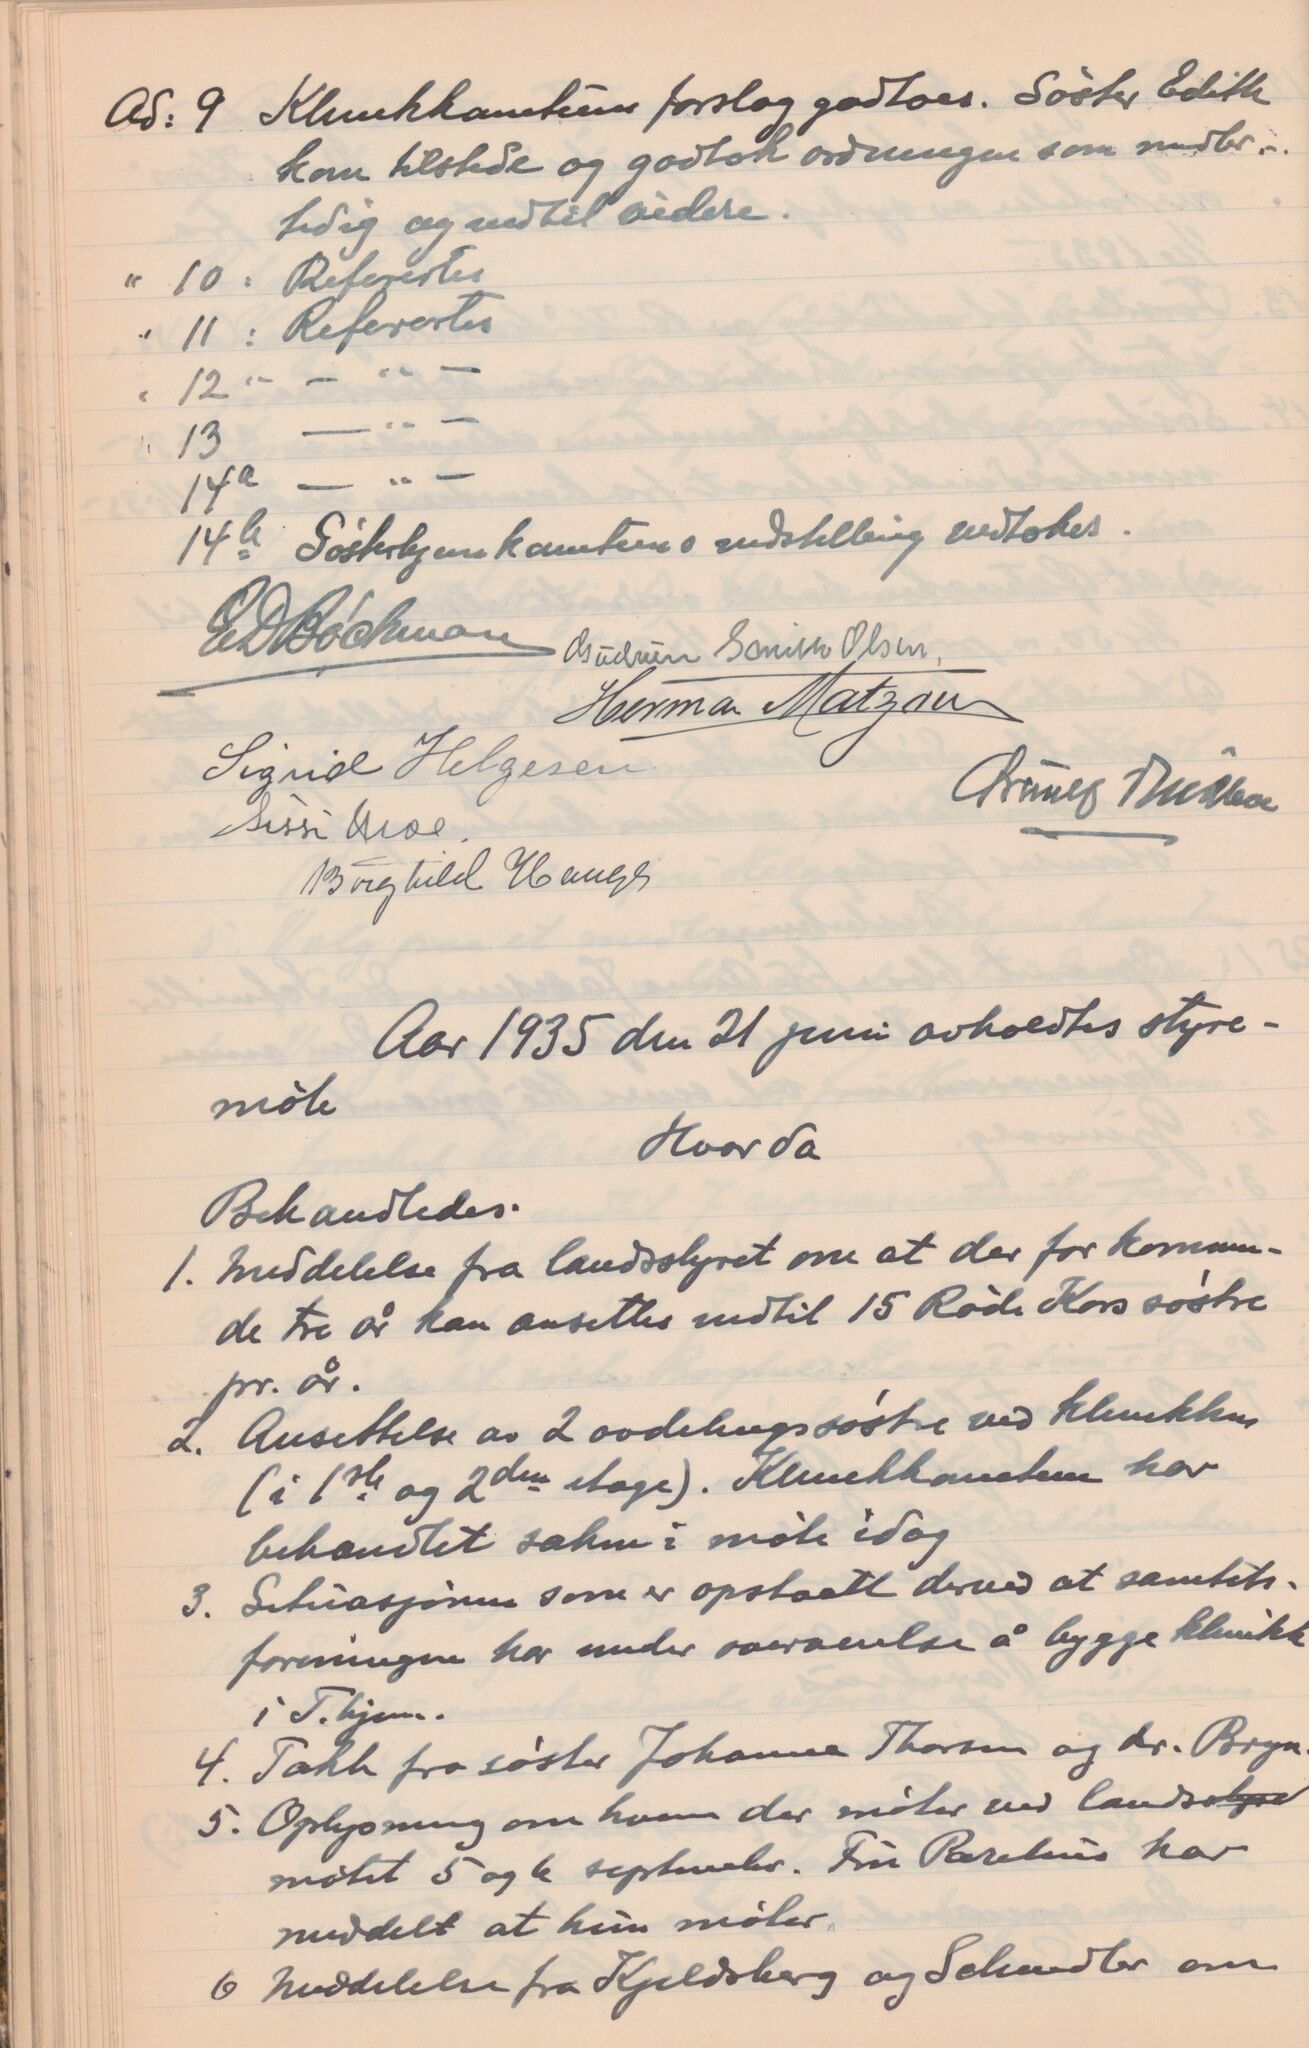 Ad: 9 Klinikkomiteens forslag godtoes. Söster Edith
kom tilstede og godtok ordningen som midler-
tidig og indtil videre.
" 10 : Refereertes
" 11 : Refereertes
" 12 " - " -
" 13 — " -
14a — " -
14b Sösterhjemkomiteens indstilling vedtokes.
E D Böckman
Gudrun Smith Olsen,
Herman Matzow
Sigrid Helgesen
Sissi Moe.
Borghild Hauge
Aar 1935 den 21 juni avholdtes styre-
möte
Hvor da
Behandledes.
1. Meddelelse fra landsstyret om at der for kommen-
de tre år kan ansettes indtil 15 Röde Kors söstre
pr. år.
2. Ansettelse av 2 avdelingssöstre ved klinikken
(i 1ste og 2den etage). Klinikkomiteen har
behandlet saken i möte idag
3. Situasjonen som er opstaatt derved at sanitets-
foreningen har under overveielse å bygge klinikk
i T.hjem.
4. Takk fra söster Johanne Thorsen og dr. Bryn.
5. Oplysning om hvem der möter ved landsstyre
mötet 5 og 6 september. Fru Parelius har
meddelt at hun möter.
6 Meddelelse fra Kjeldsberg og Schindler om